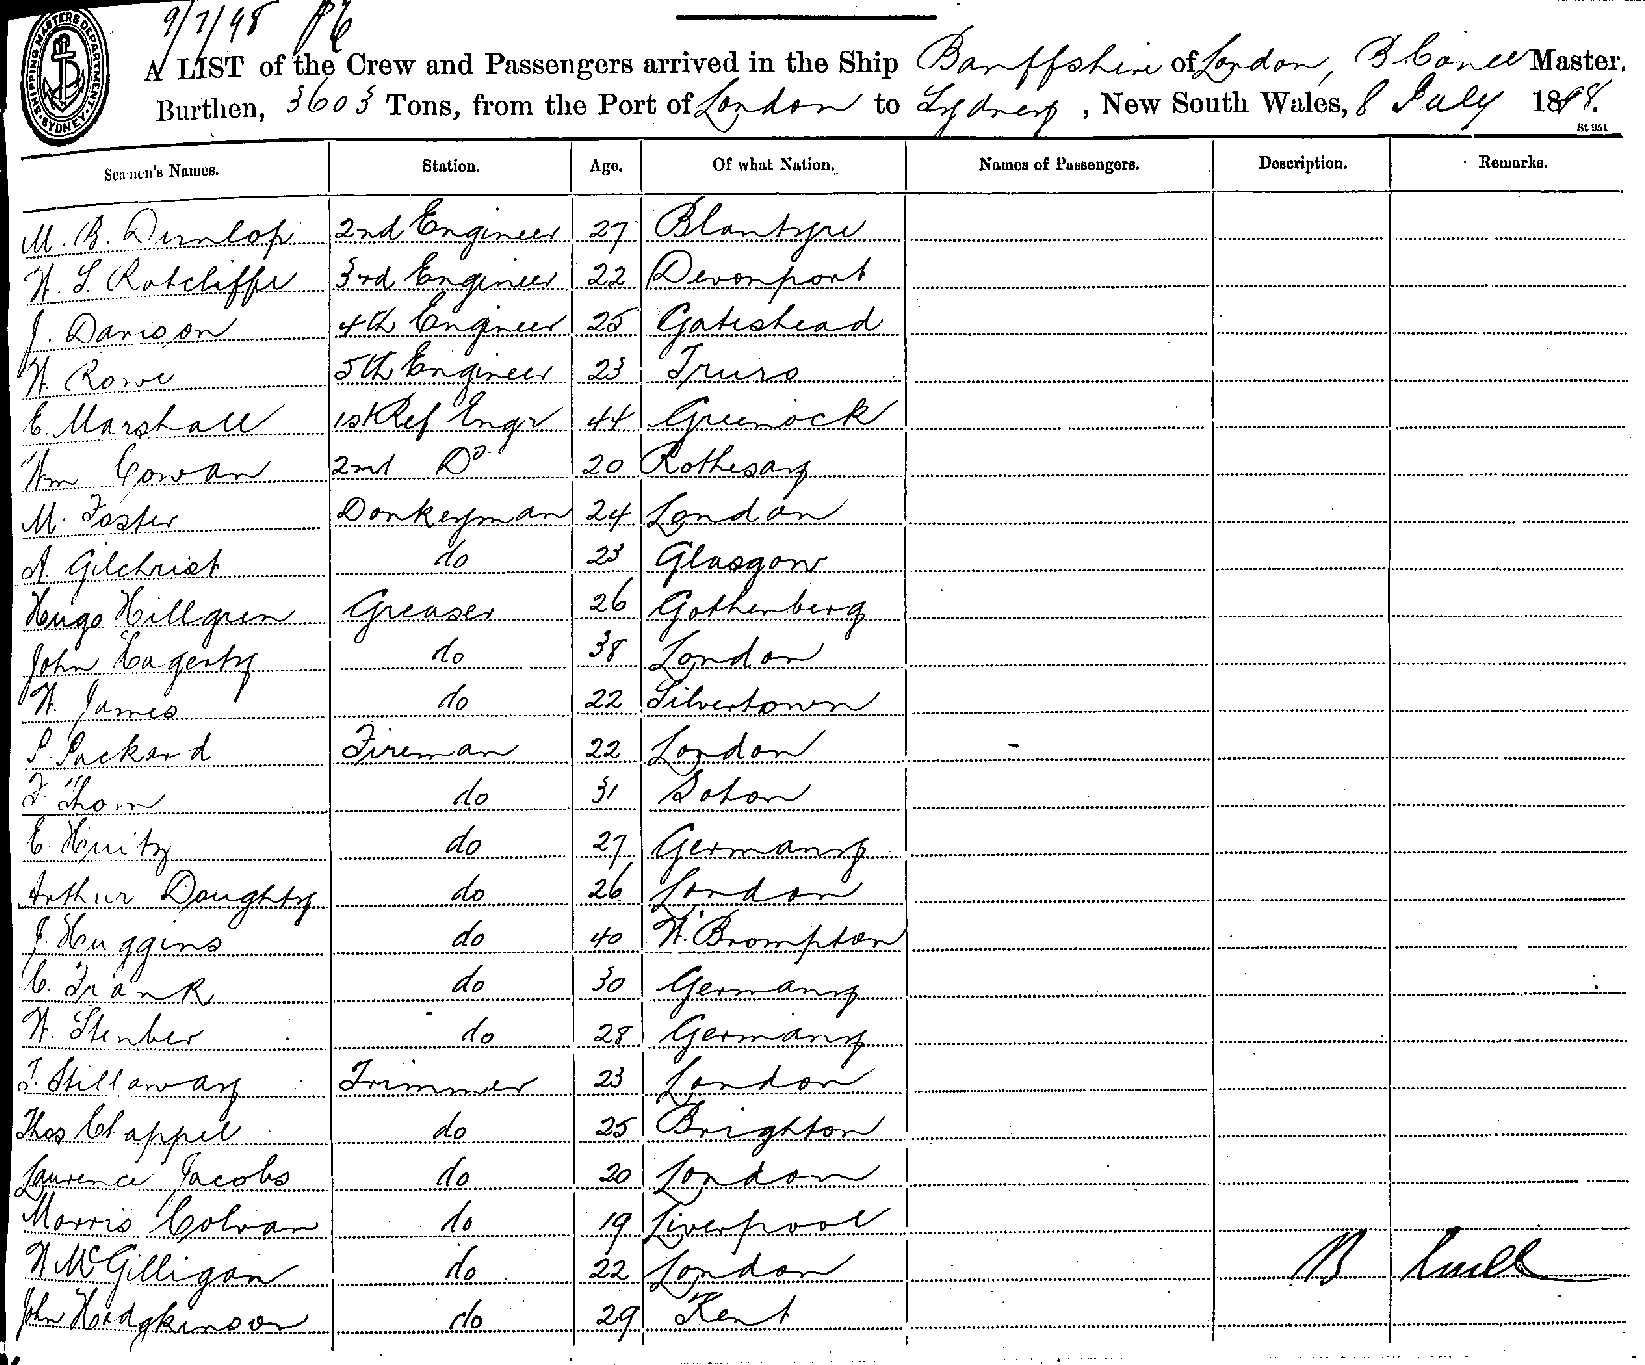 9/7/98
SHIPPING MASTERS DEPARTMENT SYDNEY
A LIST of the Crew and Passengers arrived in the Ship Banffshire of London, Master,
Burthen, 3603 Tons, from the Port of London to Sydney, New South Wales, 8 July 1898.
Seamen's Names. Station. Age. Of what Nation. Names of Passengers. Description. Remarks.
M. B. Dunlop 2nd Engineer 27 Blantyre
W. S. Ratcliffe 3rd Engineer 22 Devonport
J. Davison 4th Engineer 25 Gateshead
W Rowe 5th Engineer 23 Truro
E. Marshall 1st Ref Engr 44 Greenock
Wm Cowan 2nd Do 20 Rothesay
M. Foster Donkeyman 24 London
A. Gilchrist do 23 Glasgow
Hugo Hillgren Greaser 26 Gothenberg
John Hagerty do 38 London
W. James do 22 Silvertown
S. Packard Fireman 22 London
F. Thom do 31 Soton
E. do 27 Germany
Arthur Doughty do 26 London
J. Huggins do 40 W. Brompton
C. Frank do 30 Germany
W. Stenber do 28 Germany
F. Stillaway Trimmer 23 London
Thos Chappel do 25 Brighton
Laurence Jacobs do 20 London
Morris Colvan do 19 Liverpool
W McGilligan do 22 London
John Hodgkinson do 29 Kent